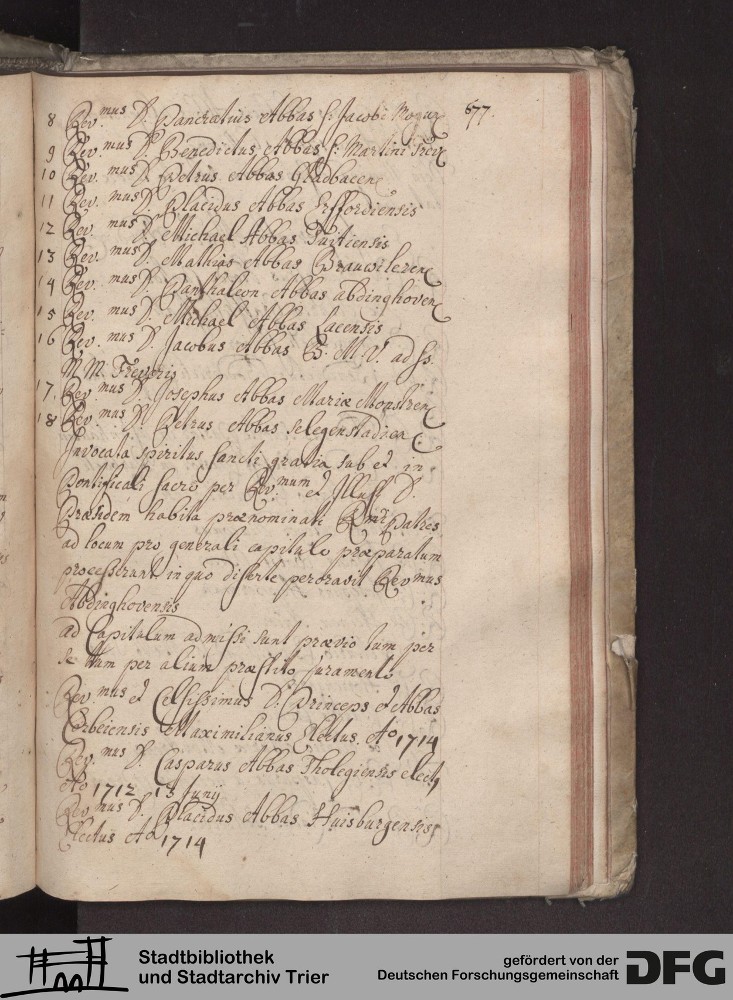 677.
8 Rev.mus D. Pancratius Abbas S. Jacobi Mogun
9 Rev.mus D. Benedictus Abbas S. Martini Trev
10 Rev.mus D. Petrus Abbas Gladbacen
11 Rev.mus D. Placidus Abbas Erffordiensis
12 Rev.mus D. Michael Abbas Tuitiensis
13 Rev.mus D. Mathias Abbas Brauwileren
14 Rev.mus D. Panthaleon Abbas abdinghoven
15 Rev.mus D. Michael Abbas Lacensis
16 Rev.mus D. Jacobus Abbas B. M. V. ad ss.
M M. Treveris
17. Rev.mus D. Josephus Abbas Mariæ Monstren
18 Rev.mus D. Petrus Abbas selegenstadien
Invocata spiritus sancti gratia sub et in
Pontificali sacro per Rev.mum et Illuss D.
Præsidem habita prænominati Rmi Patres
ad locum pro generali capitulo præparatum
processerunt in quo diserte peroravit Rev mus
Abdinghovensis
ad Capitulum admissi sunt prævio tum per
se tum per alium præstito juramento
Rev.mus et Celsissimus D. Princeps et Abbas
Corbeiensis Maximilianus Electus Ao 1714
Rev.mus D. Casparus Abbas Tholegiensis elect9
Ao 1712 13 Junij
Rev mus D. Placidus Abbas Huisburgensis
Electus Ao 1714
Stadtbibliothek
und Stadtarchiv Trier
gefördert von der
Deutschen Forschungsgemeinschaft
DFG